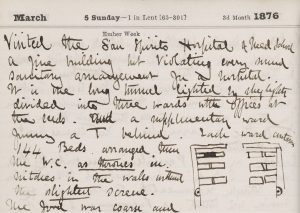 March 5 Sunday—1 in Lent [65-301] 3d Month 1876
Ember Week
Visited the San Spirito Hospital &
a fine building but violating every sound
sanitary arrangement for a hospital.
It is one long tunnel lighted by skylights
divided into three wards with offices at
the ends. And a supplementary ward
forming a T behind. Each ward contains
144 Beds arranged thus
The W.C. as thrones in
niches in the walls without
the slightest screen.
The food was coarse and